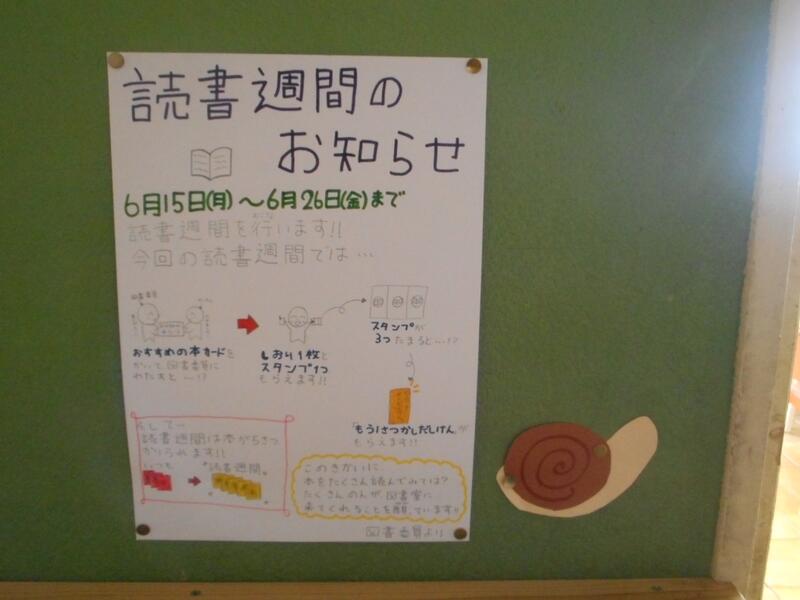 読書週間の
お知らせ
6月15日(月)～6月26日(金)まで
読書週間を行います!!
今回の読書週間では…
図書委員
おすすめの本カードを
かいて図書委員に
わたすと…!?
しおり1枚と
スタンプ1つ
もらえます!!
スタンプが
3つたまると…!?
「もう1さつかしだしけん」が
もらえます!!
そして…
読書週間は本が5さつ
かりられます!!
いつも
読書週間
このきかいに
本をたくさん読んでみては?
たくさんの人が図書室に
来てくれることを願っています!!
図書委員より